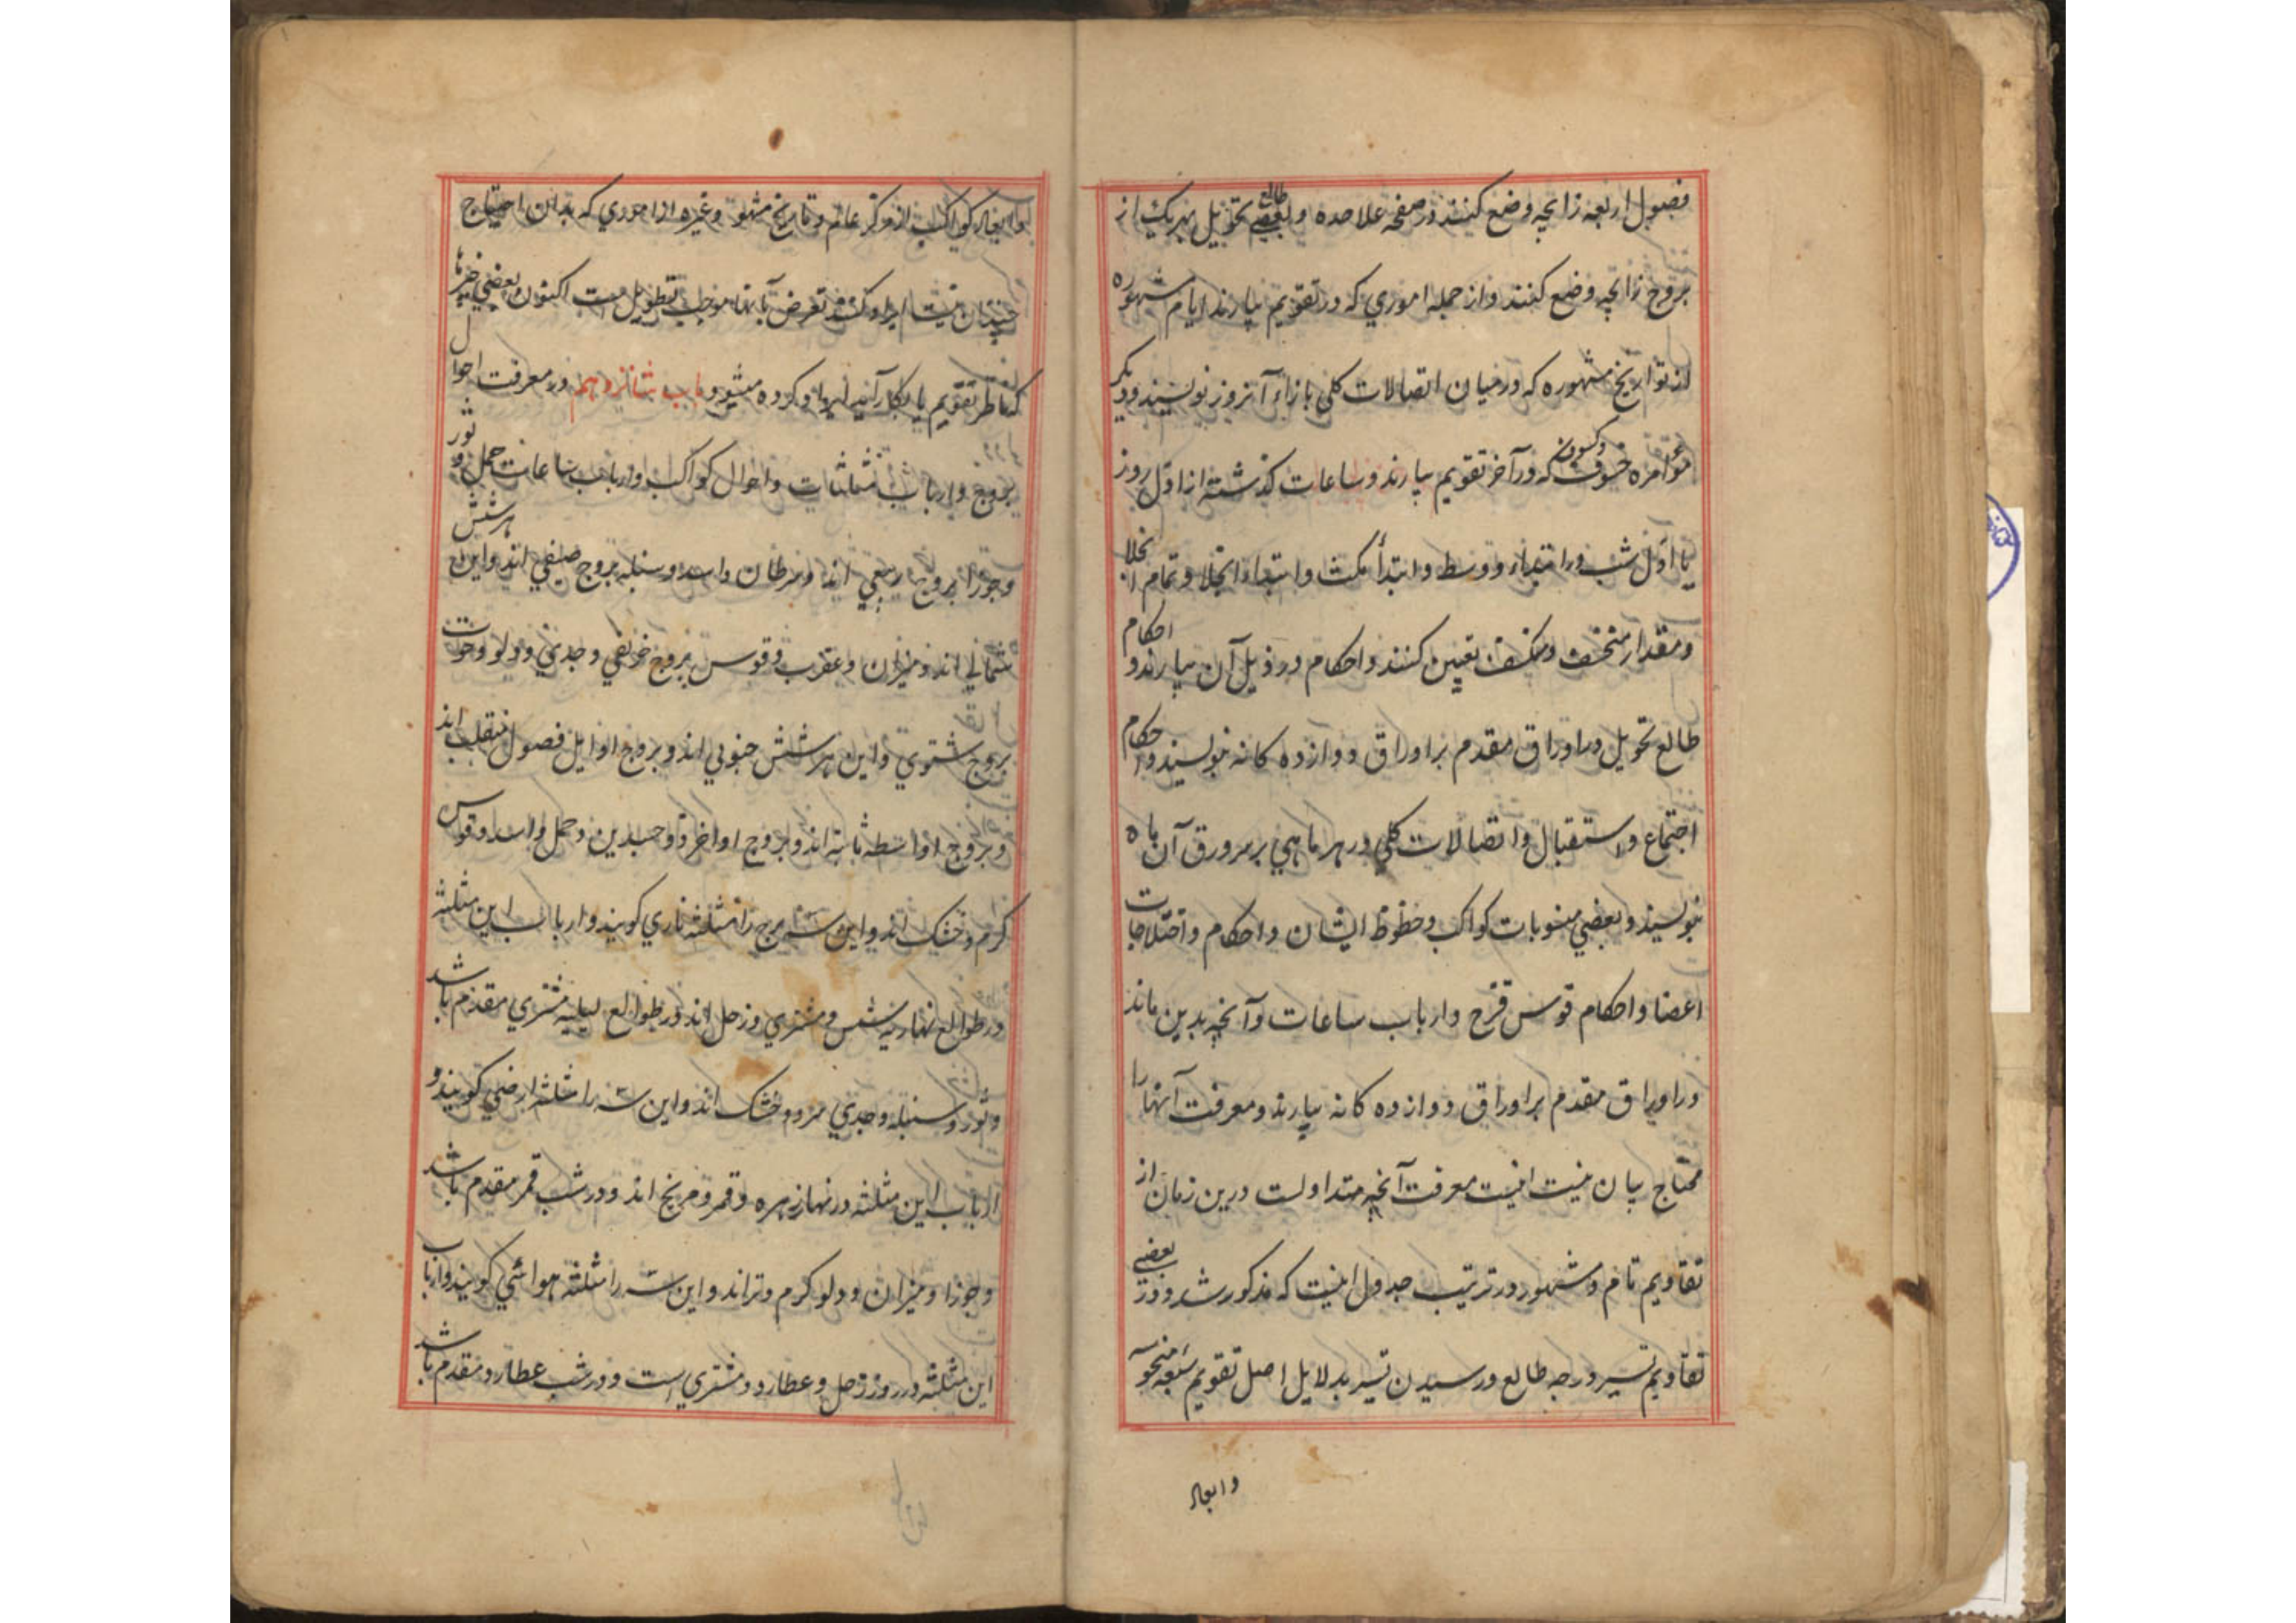 فصول اربعه زایچه وضع کنند در صفحه علاحده و بعضی طالع تحویل بهر یک از
بروج زایچه وضع کنند و از جمله اموري که در تقویم بیارند ایام مشهوره
از تواریخ مشهوره که در میان اتصالات کلی بازاء آنروز نویسند و دیگر
خسوف وکسوف که در آخر تقویم بیارند و ساعات کذشته از اول روز
یا اول شب در ابتداء و وسط و ابتدأ مکث و ابتداء انجلا و تمام انجلا
و مقدار منخسف و منکسف تعیین کنند و احکام در ذیل آن بیارند و احکام
طالع تحویل در اوراق مقدم بر اوراق دوازده کانه نویسند و احکام
اجتماع و استقبال و اتصالات کلي در هر ماهي بر سر ورق آن ماه
نویسند و بعضي منسوبات کواکب و حظوظ ایشان و احکام و اختلاجات
اعضا و احکام قوس قزح و ارباب ساعات و آنچه بدین ماند
در اوراق مقدم بر اوراق دوازده کانه بیارند و معرفت آنها را
محتاج بیان نیست اینست معرفت آنچه متداولست درین زمان از
تقاویم تام و مشهور در ترتیب جدول اینست که مذکور شد و در بعضے
تقاویم تسیر درجه طالع و رسیدن تسیر بدلایل اصل تقویم
وابعاد
وابعاد کواکب از مرکز عالم و تاریخ مشهور و غیره از اموري که بدان احتیاج
چندان نیست ایراد کنند تعرض بآنها موجب تطویل ست اکنون بعضي چیزها
که ناظر تقویم یا بکار آید ایراد کرده میشود باب شانزدهم در معرفت احوال
بروج و ارباب مثلثات و احوال کواکب و ارباب ساعات حمل و ثور
و جوزا بروج ربیعي اند و سرطان و اسد و سنبله بروج صیفي اند و این هر شش
شمالي اند و میزان و عقرب و قوس بروج خریفي و جدي و دلو و حوت
بروج شتوي و این هر شش جنوبي اند و بروج اوایل فصول منقلب اند
و بروج اواسط ثابته اند و بروج اواخر ذوجسدین و حمل و اسد و قوس
کرم و خشک اند و این سه برج را مثلثه ناري کویند و ارباب این مثلثه
در طوالع نهاریه شمس و مشتري و زحل اند و در طوالع لیلیه مشتري مقدم باشد
و ثور و سنبله و جدي سرد و خشک اند و این سه را مثلثه ارضي کویند و
ارباب این مثلثه در نهار زهره و قمر و مریخ اند و در شب قمر مقدم باشد
و جوزا و میزان و دلو کرم و تراند و این سه را مثلثه هوائي کویند و ارباب
این مثلثه در روز زحل و عطارد و مشتري است و در شب عطارد مقدم باشد